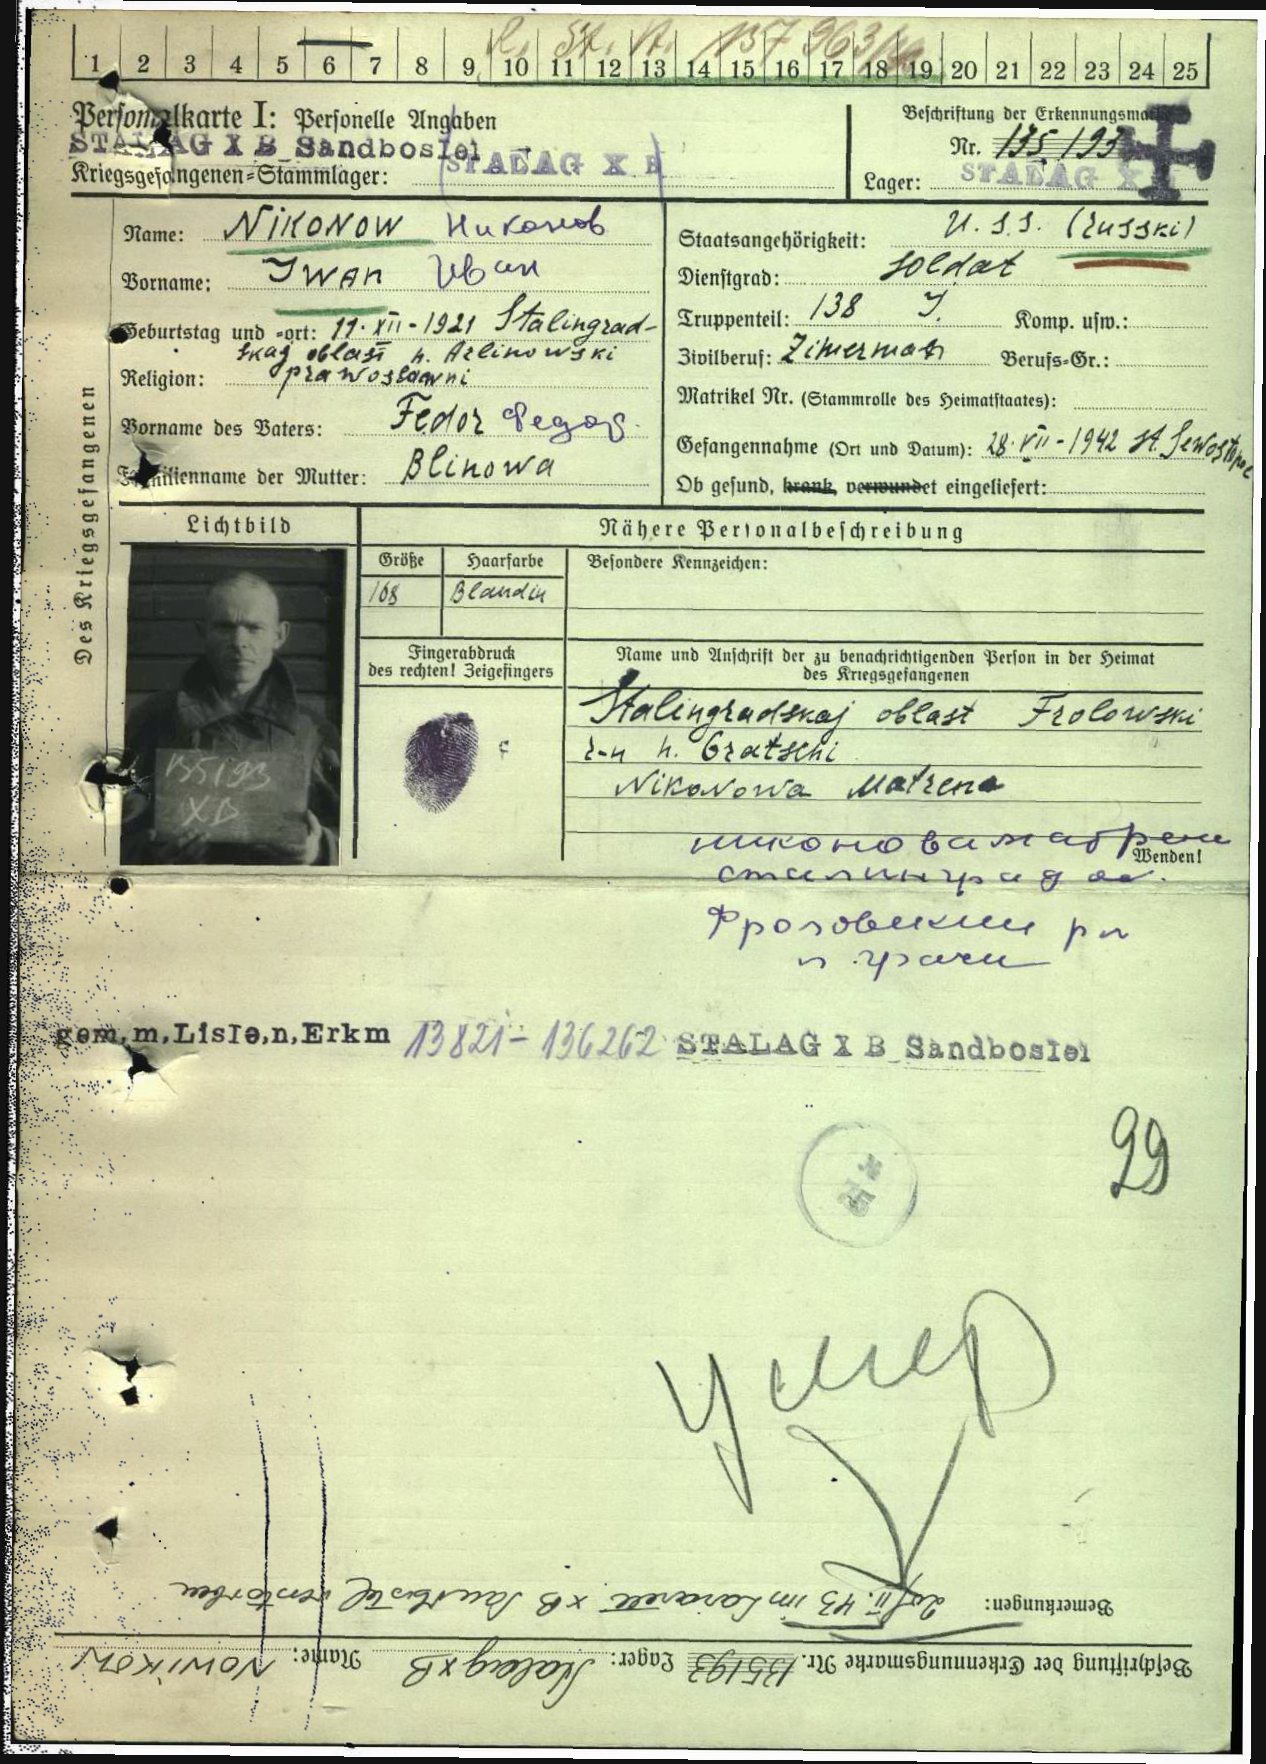 R. St. A. 157 963/
1 2 3 4 5 6 7 8 9 10 11 12 13 14 15 16 17 18 19 20 21 22 23 24 25
Personalkarte I: Personelle Angaben
STALAG X B Sandbostel
Kriegsgefangenen-Stammlager: STALAG X B
Beschriftung der Erkennungsmarke
Nr. 135193
Lager: STALAG X
Des Kriegsgefangenen
Name: NIKONOW Никонов
Vorname: IWAN Иван
Geburtstag und -ort: 11·XII-1921 Stalingrad-
skaj oblast h. Arlinowski
Religion: prawoslawni
Vorname des Vaters: Fedor Федор
Familienname der Mutter: Blinowa
Staatsangehörigkeit: U.S.S. (russki)
Dienstgrad: Soldat
Truppenteil: 138 J. Komp. usw.:
Zivilberuf: Zimerman Berufs-Gr.:
Matrikel Nr. (Stammrolle des Heimatstaates):
Gefangennahme (Ort und Datum): 28·VII-1942 st. Sewostopol
Ob gesund, krank, verwundet eingeliefert:
Lichtbild
Nähere Personalbeschreibung
Größe Haarfarbe Besondere Kennzeichen:
168 Blandin
135193
XB
Fingerabdruck
des rechten! Zeigefingers
Name und Anschrift der zu benachrichtigenden Person in der Heimat
des Kriegsgefangenen
Stalingradskaj oblast Frolowski
r-n h. Gratschi
Nikonowa Matrena
никонова матрен
Wenden!
сталинград об.
Фроловский рн
х. грачи
gem,m,Liste,n,Erkm 13821-136262 STALAG X B Sandbostel
99
умер
Bemerkungen: 20.II.43 im Lazarett XB Sandbostel verstorben
Beschriftung der Erkennungsmarke Nr. 135193 Lager: Stalag XB Name: NOWIKOW